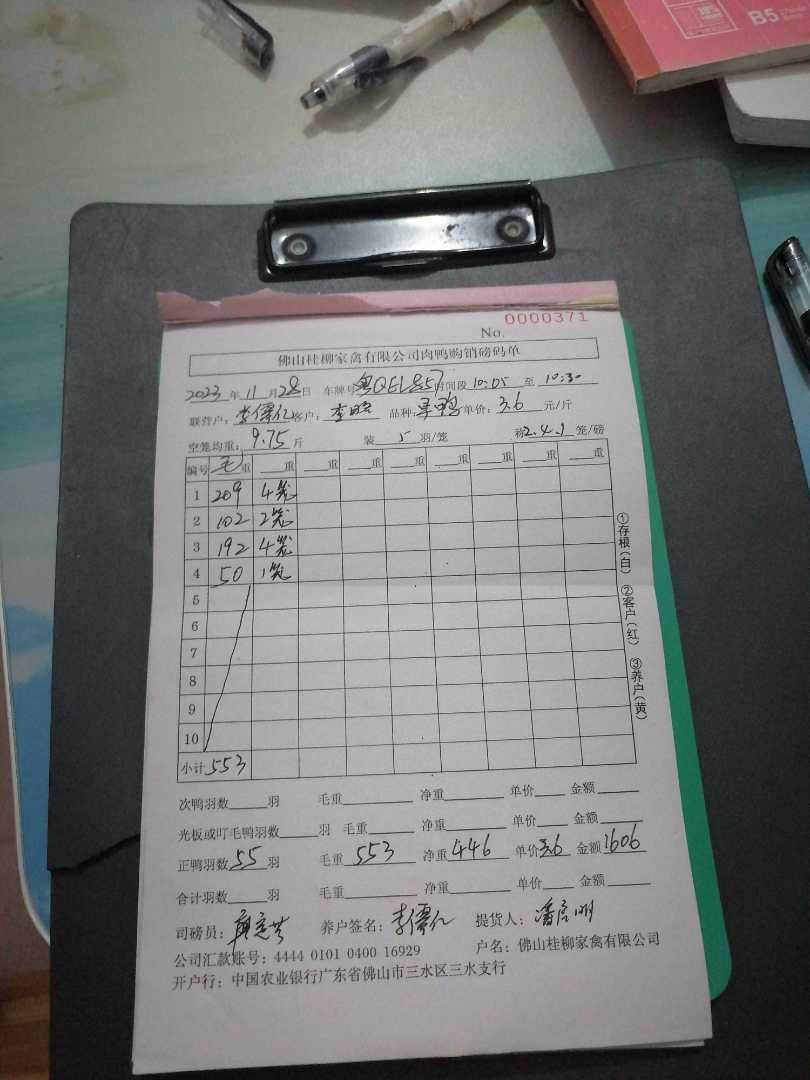 B5
0000371
No.
佛山桂柳家禽有限公司肉鸭购销磅码单
2023年11月28日 车牌号粤QEL857时间段10:05至10:30
联营户:李儒亿客户:李 品种:鸭单价:3.6元/斤
空笼均重:9.75斤 装5羽/笼 称2.4.1笼/磅
编号 毛重 重 重 重 重 重 重 重
1 209 4笼
2 102 2笼
3 192 4笼
4 50 1笼
5
6
7
8
9
10
小计 553
①存根(白) ②客户(红) ③养户(黄)
次鸭羽数 羽 毛重 净重 单价 金额
光板或叮毛鸭羽数 羽 毛重 净重 单价 金额
正鸭羽数55羽 毛重553 净重446 单价3.6 金额1606
合计羽数 羽 毛重 净重 单价 金额
司磅员: 养户签名:李儒亿 提货人:潘 明
公司汇款账号:4444 0101 0400 16929 户名:佛山桂柳家禽有限公司
开户行:中国农业银行广东省佛山市三水区三水支行